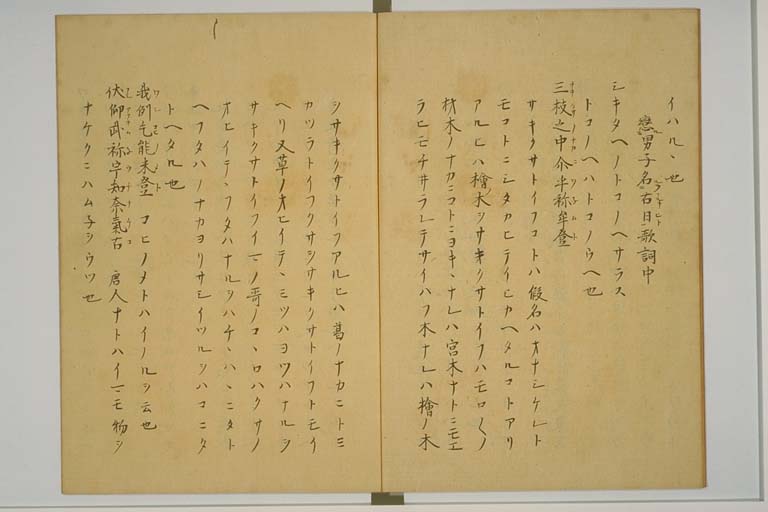 イハルヽ也
戀男子名古日歌詞中
シキタヘノトコノヘサラス
トコノヘハトコノウヘ也
三枝之中介乎祢牟登
サキクサトイフコトハ假名ハオナシケレト
モコトニシタカヒテイヒカヘタルコトアリ
アルヒハ檜木ヲサキクサトイフハモロ〱ノ
材木ノナカニコトニヨキヽナレハ宮木ナトニモエ
ラヒモチヰラレテサイハフ木ナレハ檜ノ木
ヲサキクサトイフアルヒハ葛ノナカニトミ
カツラトイフクサヲサキクサトイフトモイ
ヘリ又草ノオヒイテヽミツハヨツハナルヲ
サキクサトイフイマノ哥ノコヽロハクサノ
オヒイテヽフタハナルヲハチヽハヽニタト
ヘフタハノナカヨリサシイツルヲハコニタ
トヘタル也
我例乞能米登 コヒノメトハイノルヲ云也
伏仰武祢宇知奈氣古 唐人ナトハイマモ物ヲ
ナケクニハムネヲウツ也